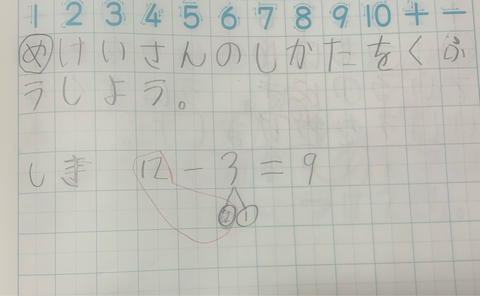 1 2 3 4 5 6 7 8 9 10 + −
め けいさんのしかたをくふ
うしよう。
しき 12 − 3 = 9
② ①